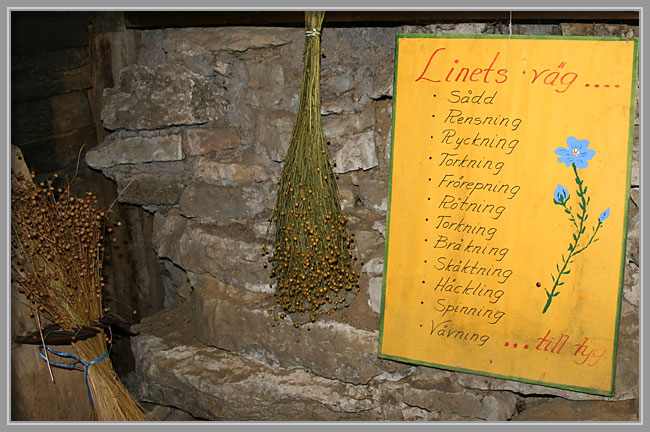 Linets väg ....
· Sådd
· Rensning
· Ryckning
· Torkning
· Frörepning
· Rötning
· Torkning
· Bråkning
· Skäktning
· Häckling
· Spinning
· Vävning
... till tyg